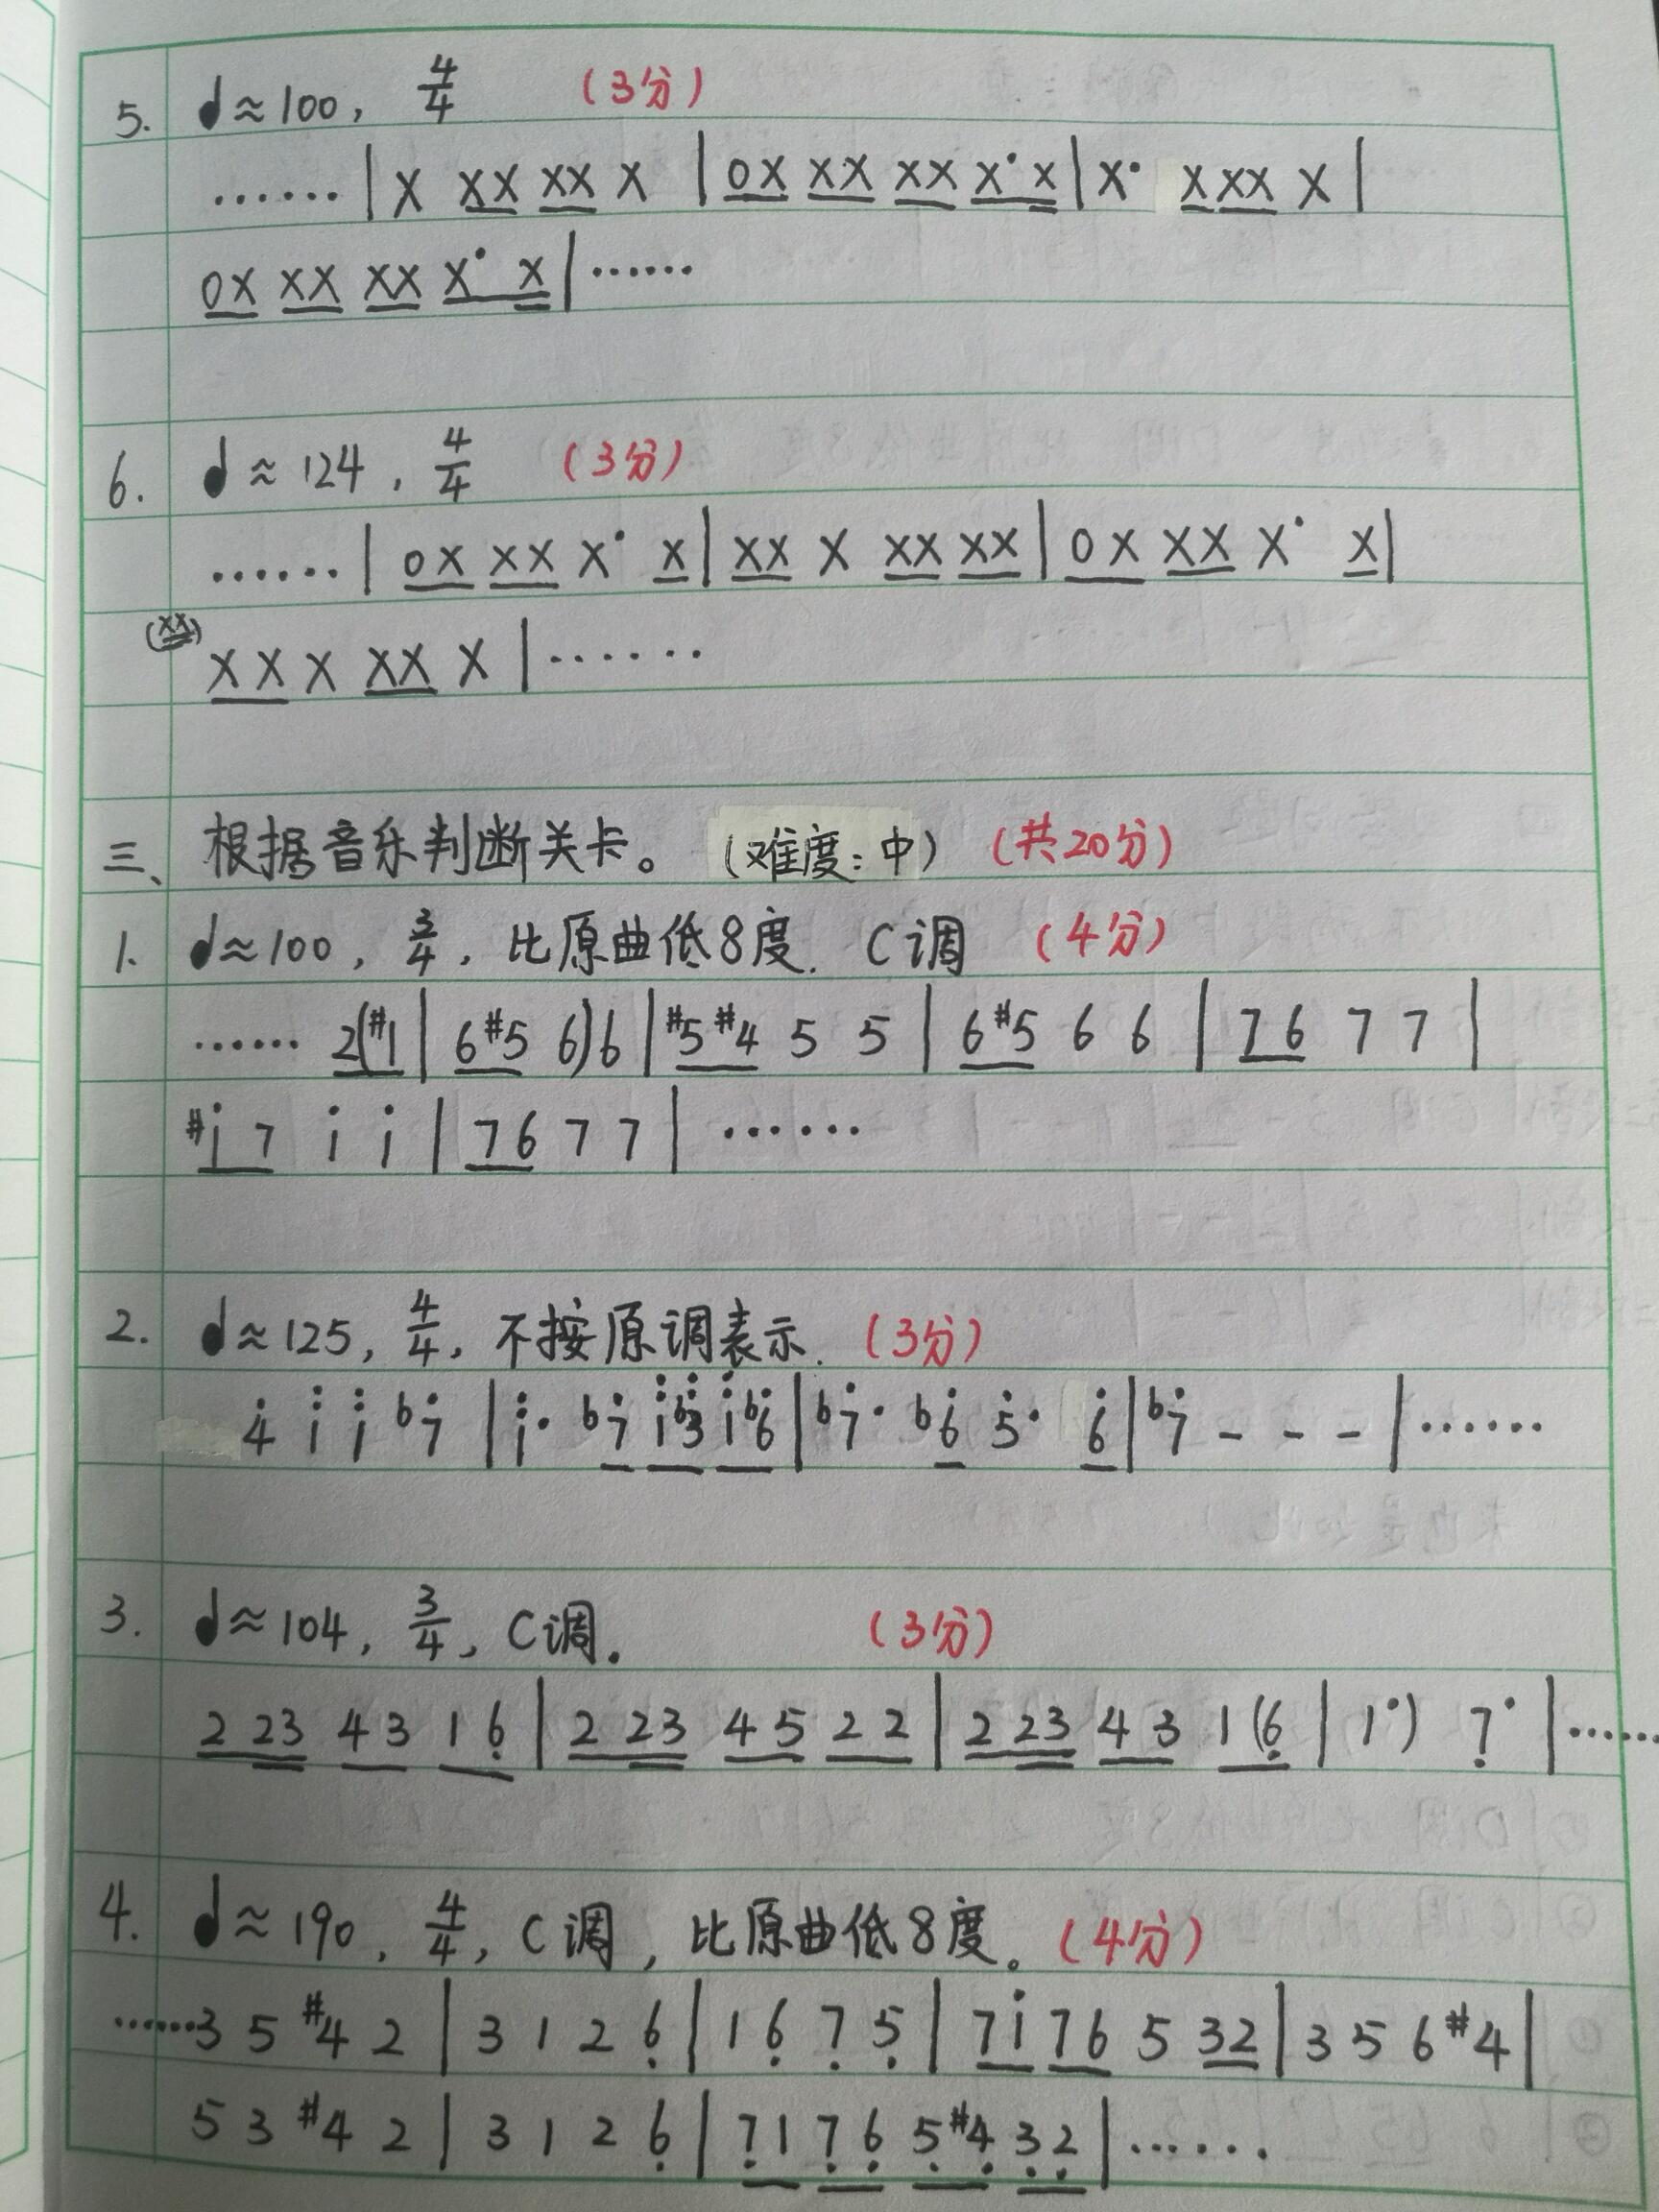 5. ♩≈100, 4/4 (3分)
……| X XX XX X | 0X XX XX X· X | X· XXX X |
0X XX XX X· X |……
6. ♩≈124, 4/4 (3分)
……| 0X XX X· X | XX X XX XX | 0X XX X· X |
(XX) XX X XX X |……
三、根据音乐判断关卡。(难度:中) (共20分)
1. ♩≈100, 3/4, 比原曲低8度. C调 (4分)
…… 2(#1 | 6#5 6)6 | #5#4 5 5 | 6#5 6 6 | 76 7 7 |
#i̇7 i̇ i̇ | 76 7 7 | ……
2. ♩≈125, 4/4, 不按原调表示. (3分)
4̇ 1̈ 1̈ b7̇ | 1̈· b7̇ 1̈b3̈ 1̈b6̇ | b7̇· b6̇ 5̇· 6̇ | b7̇ - - - |……
3. ♩≈104, 3/4, C调. (3分)
2 23 43 16̣ | 2 23 45 22 | 2 23 43 1(6̣ | 1·) 7̣· |……
4. ♩≈190, 4/4, C调, 比原曲低8度。(4分)
……3 5 #4 2 | 3 1 2 6̣ | 1 6̣ 7̣ 5̣ | 7i̇ 76 5 32 | 3 5 6 #4 |
5 3 #4 2 | 3 1 2 6̣ | 7̣1 7̣6̣ 5̣#4̣ 3̣2̣ |……